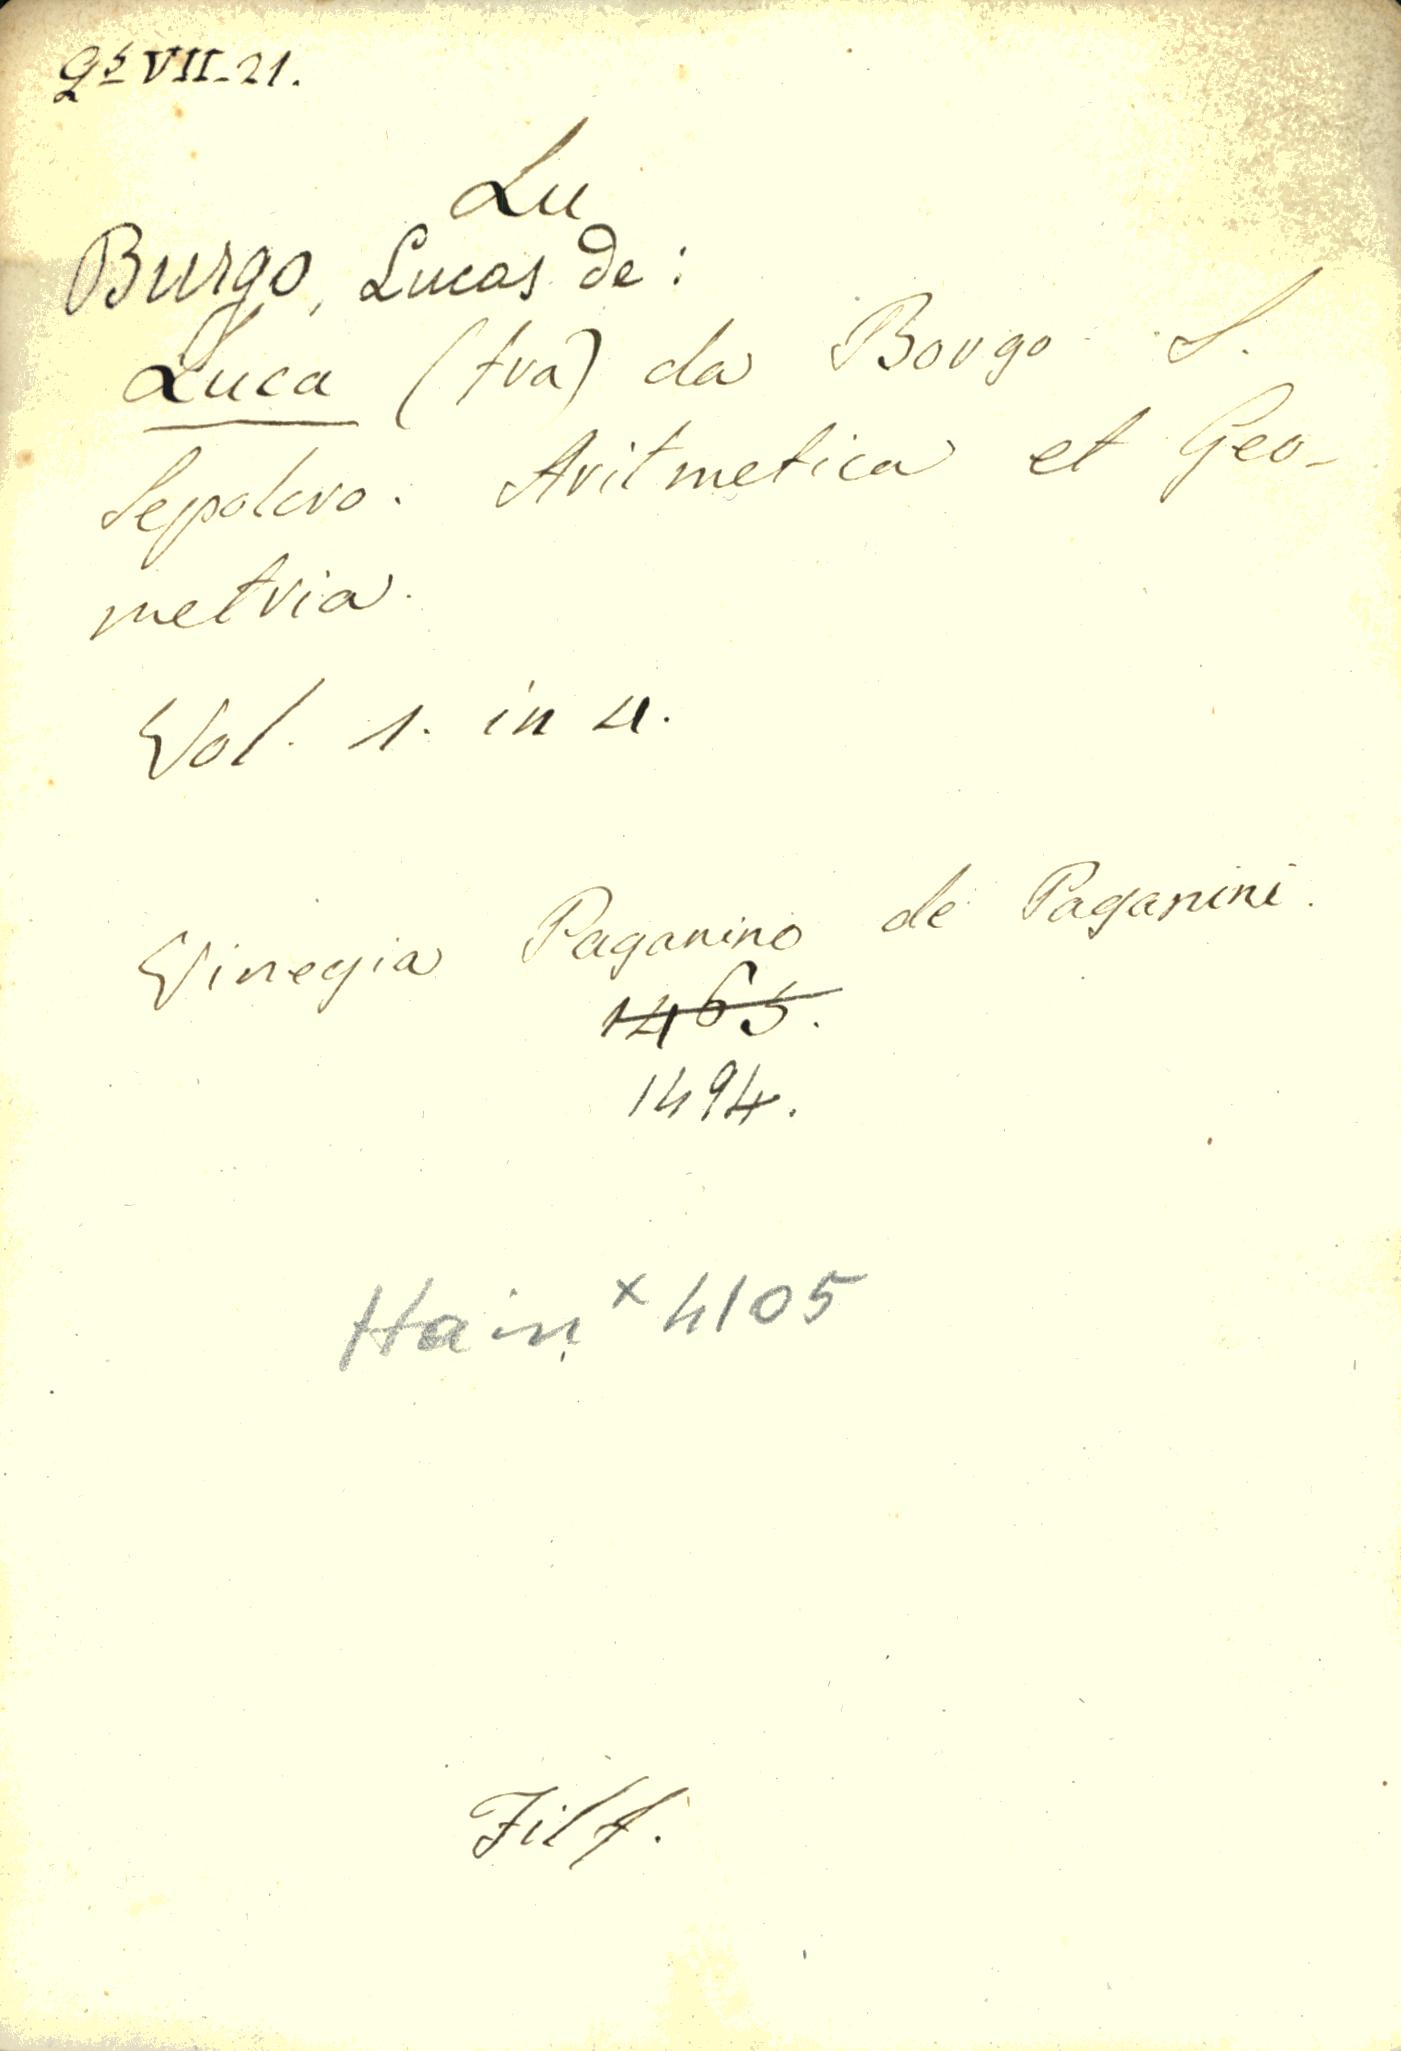 Qs VII-21.
Lu
Burgo, Lucas de:
Luca (fra) da Borgo S.
Sepolcro. Aritmetica et Geo-
metria.
Vol. 1. in 4.
Vinegia Paganino de Paganini.
1465.
1494.
Hain x 4105